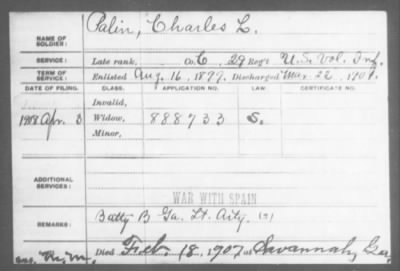 NAME OF SOLDIER: Palin, Charles L.
SERVICE: Late rank, Co. C, 29 Reg't U.S. Vol. Inf.
TERM OF SERVICE: Enlisted Aug. 16, 1899, Discharged Mar. 22, 1901.
DATE OF FILING. CLASS. APPLICATION NO. LAW. CERTIFICATE NO.
Invalid,
1908 Apr. 3 Widow, 888733 S.
Minor,
ADDITIONAL SERVICES:
WAR WITH SPAIN
REMARKS: Batty B Ga. Lt. Arty.
Died Feb. 18, 1907 at Savannah, Ga.